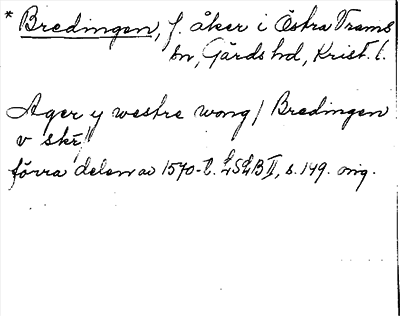 * Bredingen, f. åker i Östra Vrams
sn, Gärds hd, Krist. l.
Ager y westre wong / Bredingen
v skr̃ //
förra delen av 1570-t. LSLB II, s. 149. orig.